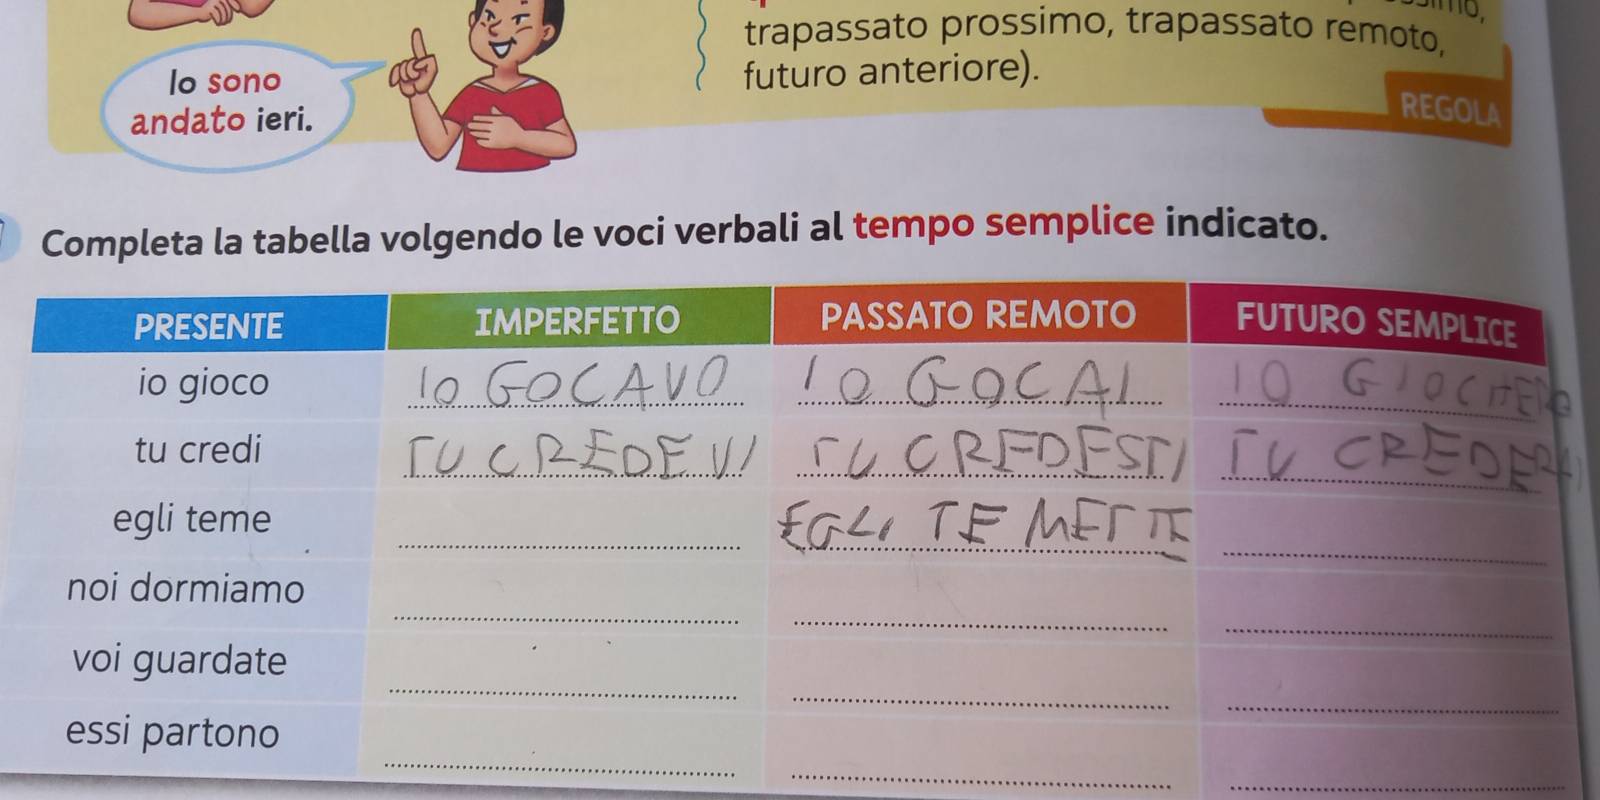 trapassato prossimo, trapassato remoto,
futuro anteriore).
REGOLA
Io sono
andato ieri.
Completa la tabella volgendo le voci verbali al tempo semplice indicato.
PRESENTE IMPERFETTO PASSATO REMOTO FUTURO SEMPLICE
io gioco IO GOCAVO IO GOCAI IO GIOCHERO
tu credi TU CREDEVI TU CREDESTI TU CREDERAI
egli teme EGLI TEMETTE
noi dormiamo
voi guardate
essi partono